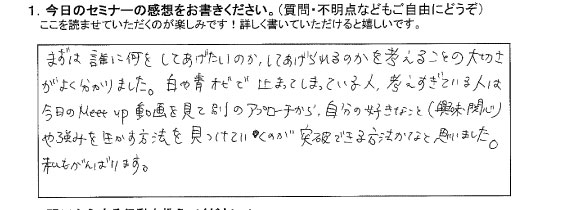 1. 今日のセミナーの感想をお書きください。(質問・不明点などもご自由にどうぞ)
ここを読ませていただくのが楽しみです！詳しく書いていただけると嬉しいです。
まずは 誰に何をしてあげたいのか、してあげられるのかを考えることの大切さ
がよく分かりました。白や青ゼで止まってしまっている人、考えすぎている人は
今日のMeet up 動画を見て別のアプローチから、自分の好きなこと(興味・関心)
や強みを活かす方法を見つけていくのが突破できる方法かなと思いました。
私もがんばります。